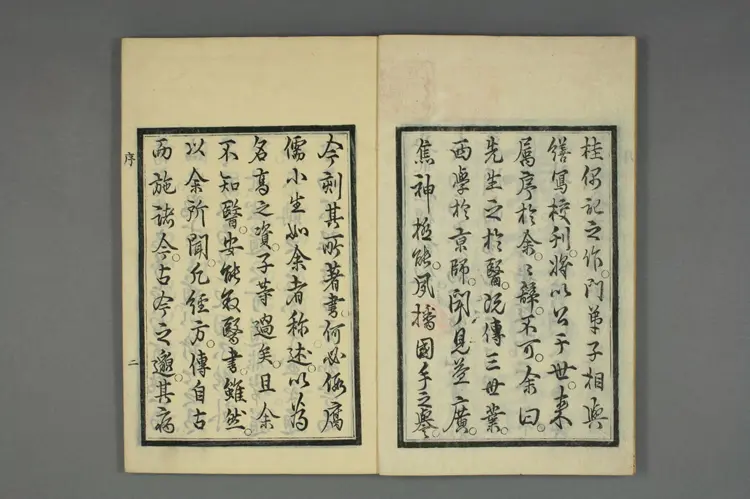 桂偶記之作。門弟子相與
繕寫校刊。將以公于世。來
属序於余。〻辭不可。余曰。
先生之於醫。既傳三世業。
西學於京師。聞見益廣。
焦神極能。夙擅國手之譽。
今刻其所著書。何必俟腐
儒小生如余者称述。以為
名高之資。子等過矣。且余
不知醫。安能敘醫書。雖然。
以余所聞。凡經方傳自古
而施諸今。古今之邈。其病
序
二